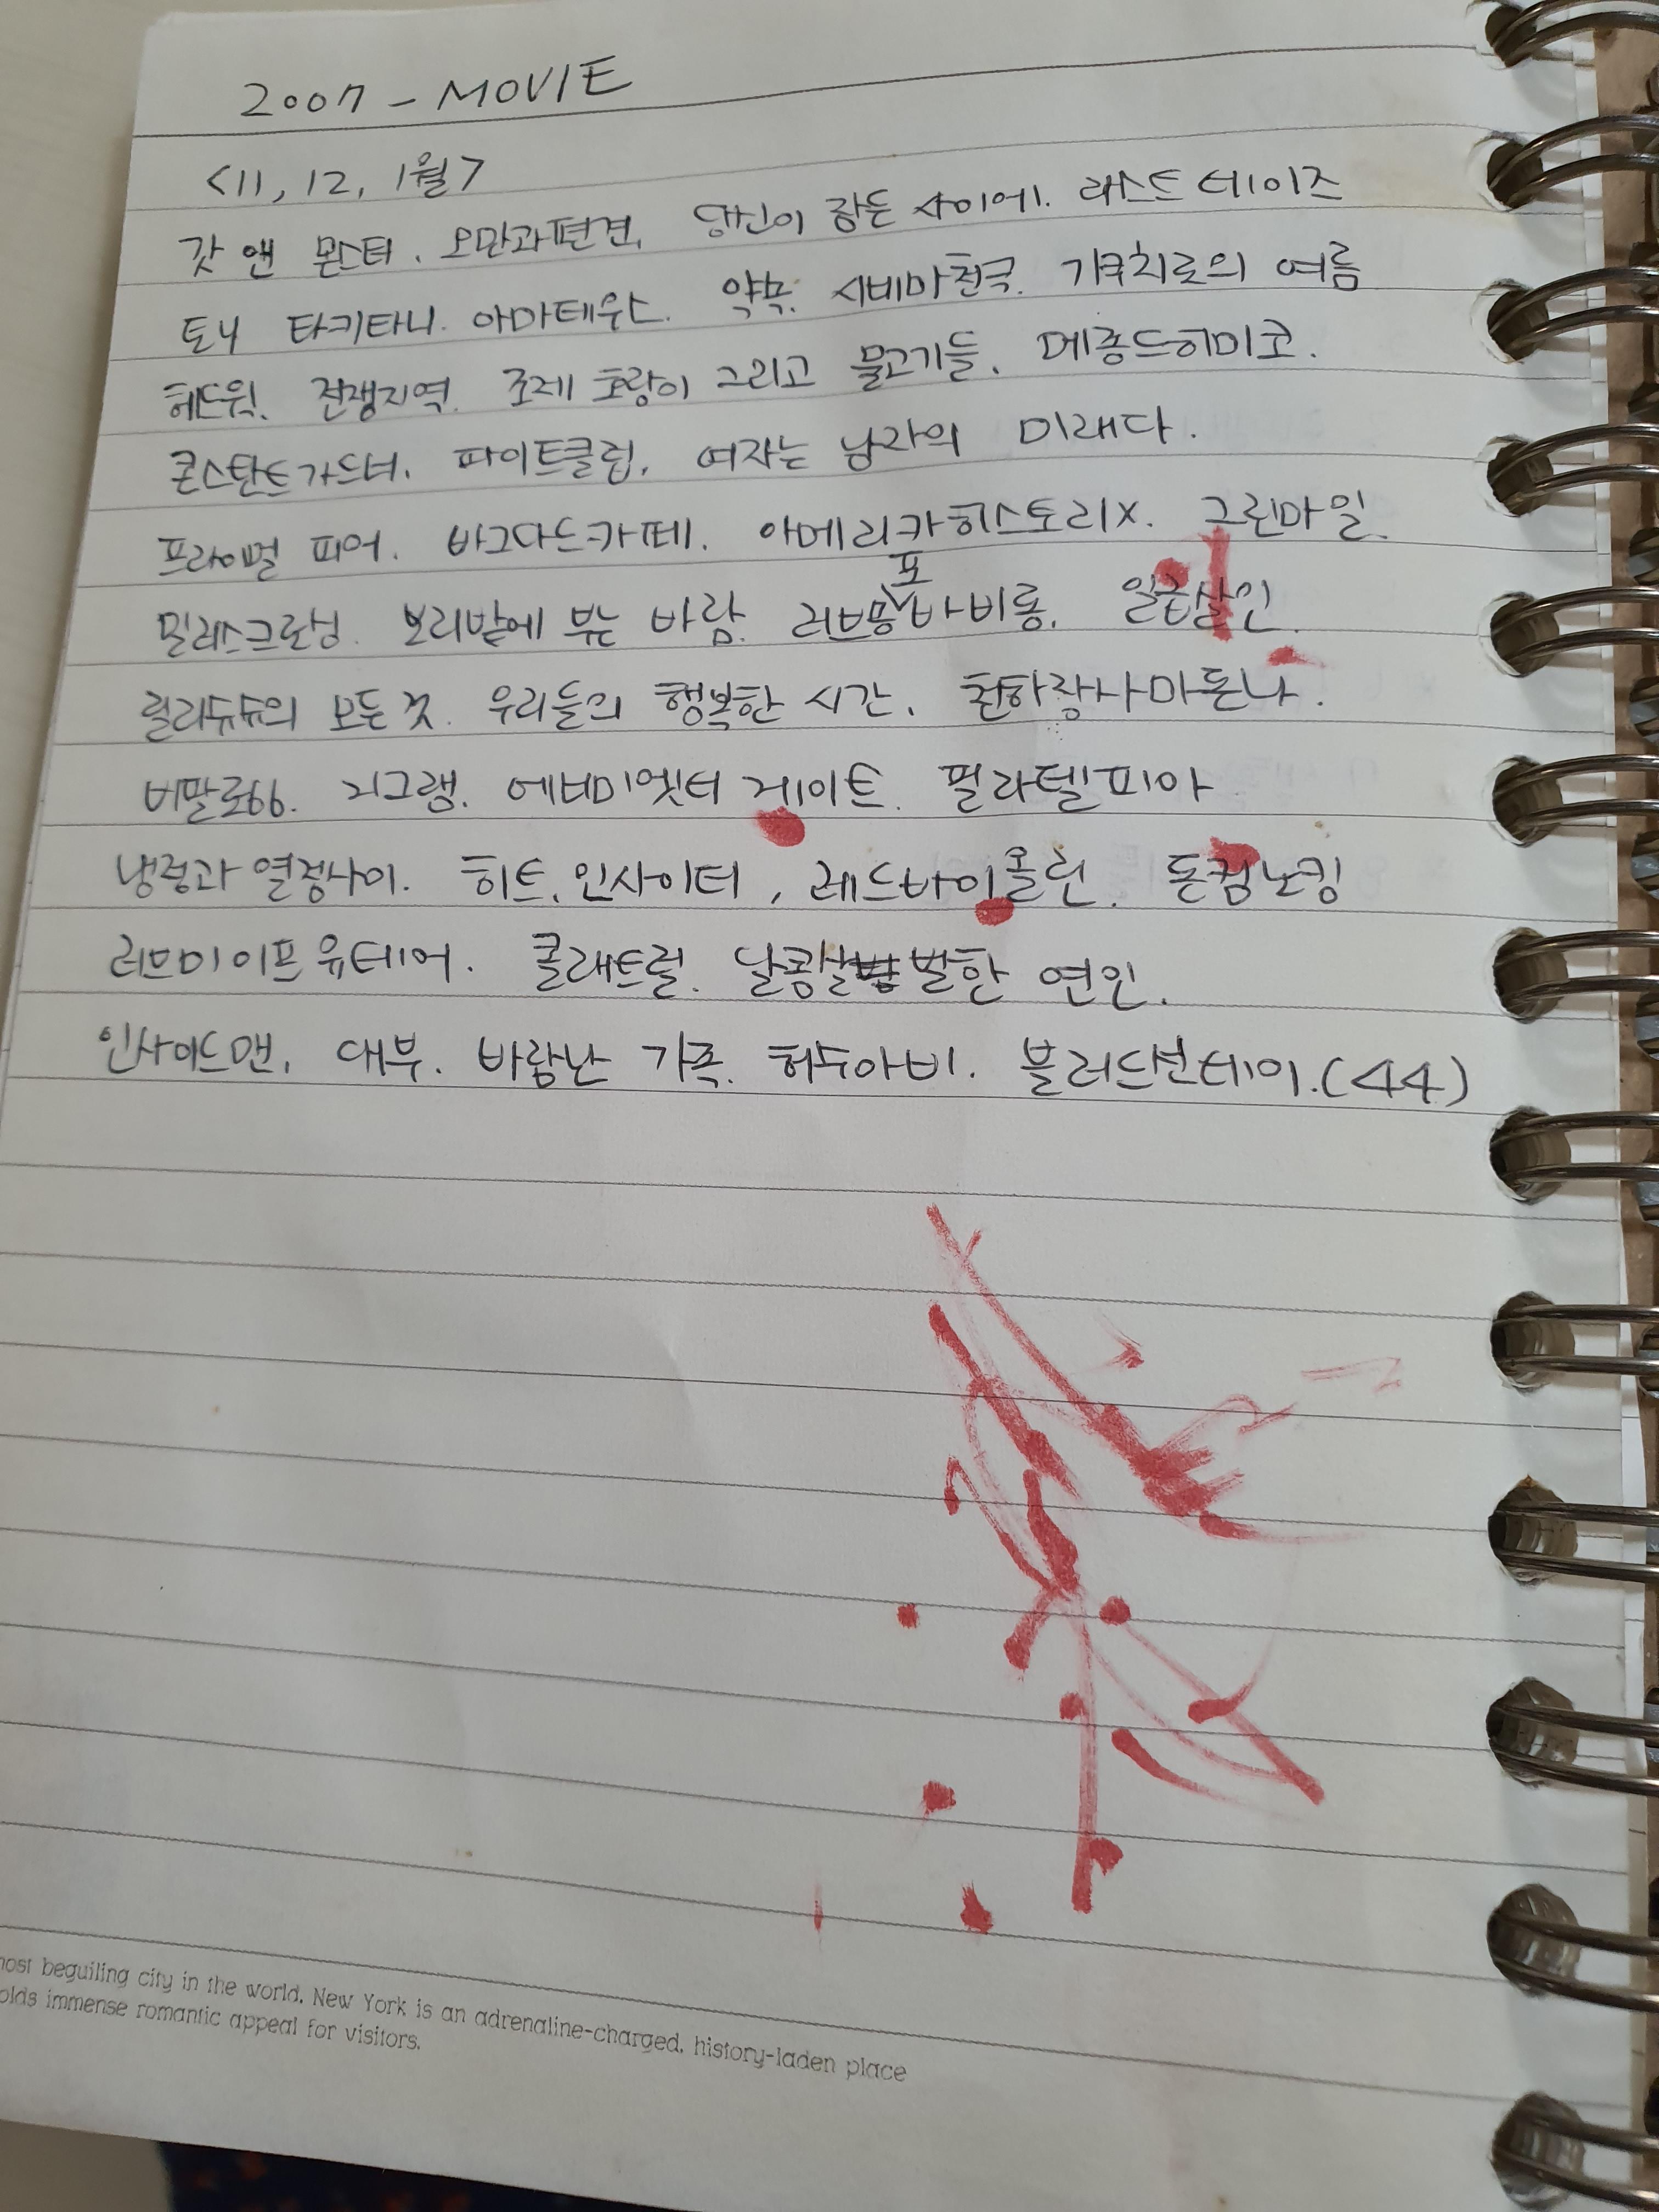 2007 - MOVIE
<11, 12, 1월>
갓 앤 몬스터. 오만과편견. 당신이 잠든 사이에. 라스트데이즈
토니 타키타니. 아마데우스. 약속. 시네마천국. 기쿠지로의 여름
헤드윅. 전쟁지역. 조제 호랑이 그리고 물고기들. 메종드히미코.
콘스탄트가드너. 파이트클럽. 여자는 남자의 미래다.
프라이멀 피어. 바그다드카페. 아메리카히스토리X. 그린마일.
밀러스크로싱. 보리밭에 부는 바람. 러브 포 바비롱. 일급살인.
릴리슈슈의 모든 것. 우리들의 행복한 시간. 천하장사마돈나.
버팔로66. 21그램. 에너미엣더 게이트. 필라델피아
냉정과 열정사이. 히트. 인사이더, 레드바이올린. 돈컴노킹
러브미이프유데어. 콜래트럴. 달콩살벌한 연인.
인사이드맨. 대부. 바람난 가족. 허수아비. 블러드선데이.(44)
most beguiling city in the world. New York is an adrenaline-charged, history-laden place
olds immense romantic appeal for visitors.